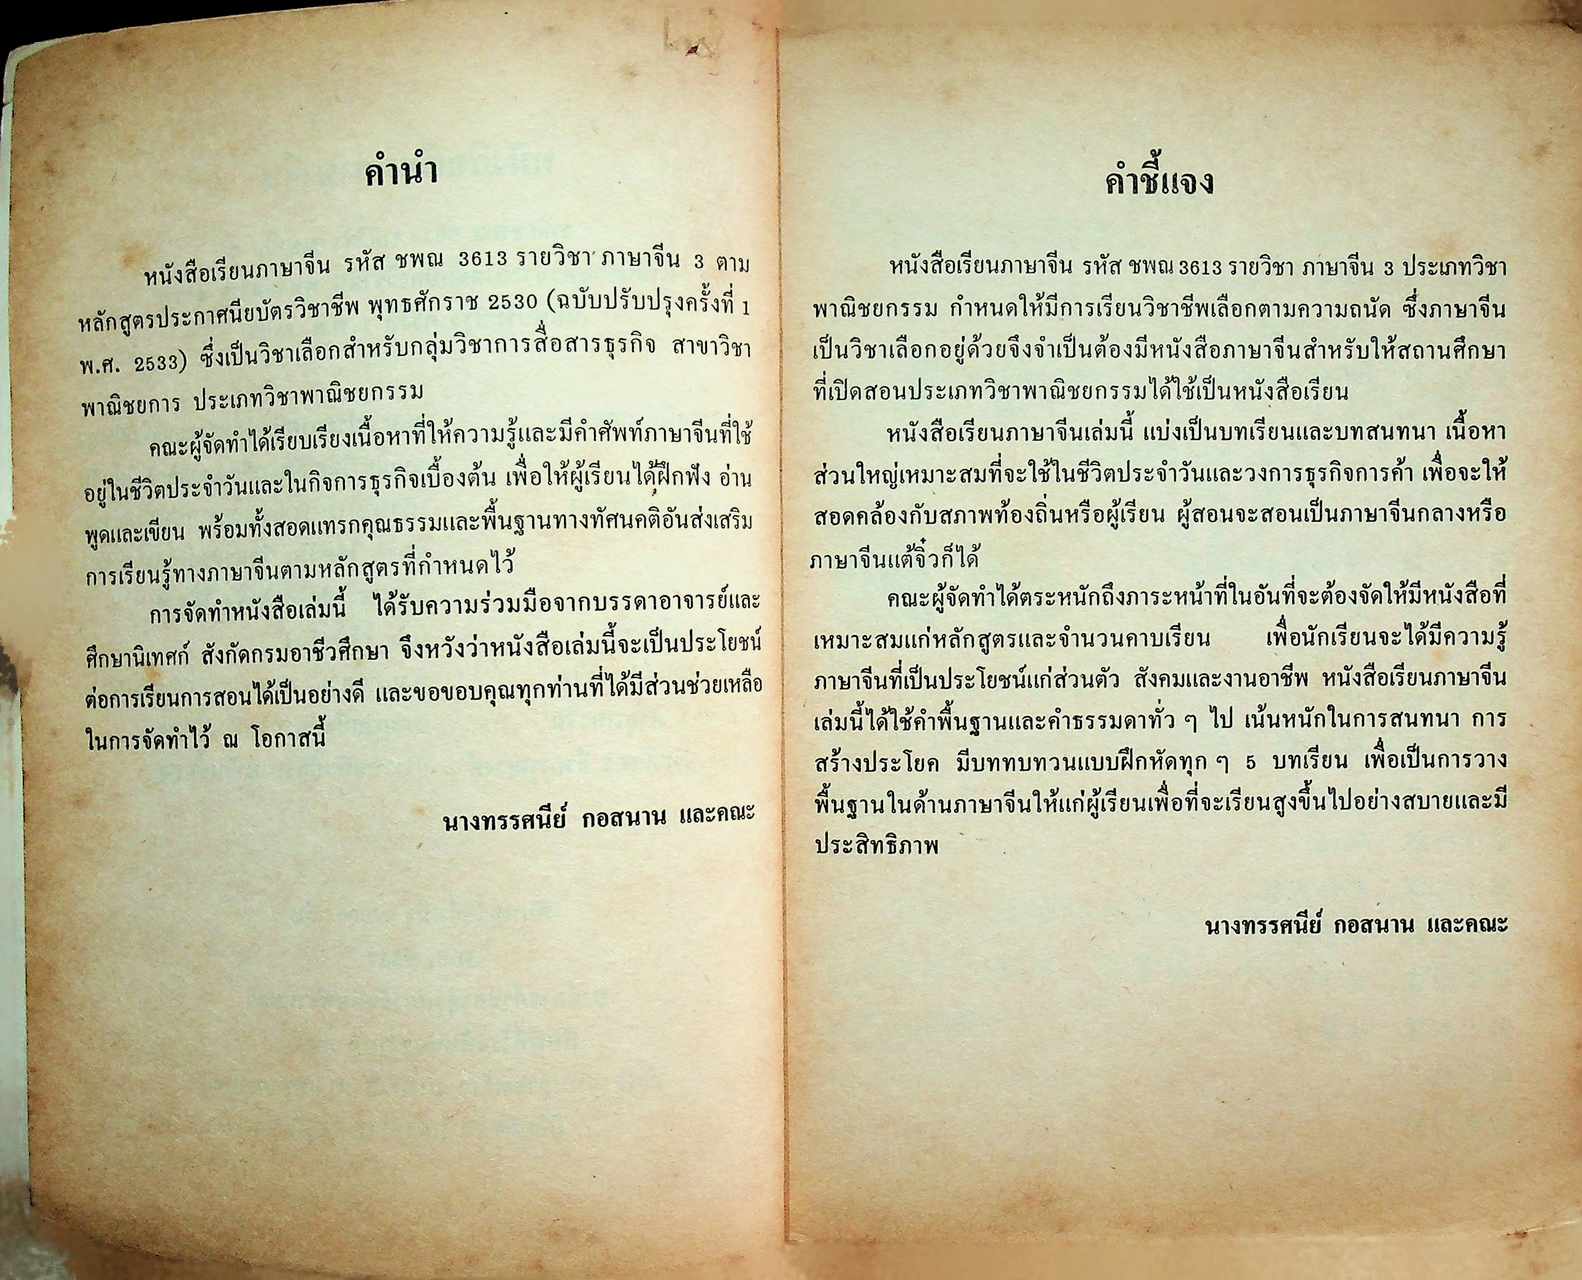 คำนำ
หนังสือเรียนภาษาจีน รหัส ชพณ 3613 รายวิชา ภาษาจีน 3 ตาม
หลักสูตรประกาศนียบัตรวิชาชีพ พุทธศักราช 2530 (ฉบับปรับปรุงครั้งที่ 1
พ.ศ. 2533) ซึ่งเป็นวิชาเลือกสำหรับกลุ่มวิชาการสื่อสารธุรกิจ สาขาวิชา
พาณิชยการ ประเภทวิชาพาณิชยกรรม
คณะผู้จัดทำได้เรียบเรียงเนื้อหาที่ให้ความรู้และมีคำศัพท์ภาษาจีนที่ใช้
อยู่ในชีวิตประจำวันและในกิจการธุรกิจเบื้องต้น เพื่อให้ผู้เรียนได้ฝึกฟัง อ่าน
พูดและเขียน พร้อมทั้งสอดแทรกคุณธรรมและพื้นฐานทางทัศนคติอันส่งเสริม
การเรียนรู้ทางภาษาจีนตามหลักสูตรที่กำหนดไว้
การจัดทำหนังสือเล่มนี้ ได้รับความร่วมมือจากบรรดาอาจารย์และ
ศึกษานิเทศก์ สังกัดกรมอาชีวศึกษา จึงหวังว่าหนังสือเล่มนี้จะเป็นประโยชน์
ต่อการเรียนการสอนได้เป็นอย่างดี และขอขอบคุณทุกท่านที่ได้มีส่วนช่วยเหลือ
ในการจัดทำไว้ ณ โอกาสนี้
นางทรรศนีย์ กอสนาน และคณะ
คำชี้แจง
หนังสือเรียนภาษาจีน รหัส ชพณ 3613 รายวิชา ภาษาจีน 3 ประเภทวิชา
พาณิชยกรรม กำหนดให้มีการเรียนวิชาชีพเลือกตามความถนัด ซึ่งภาษาจีน
เป็นวิชาเลือกอยู่ด้วยจึงจำเป็นต้องมีหนังสือภาษาจีนสำหรับให้สถานศึกษา
ที่เปิดสอนประเภทวิชาพาณิชยกรรมได้ใช้เป็นหนังสือเรียน
หนังสือเรียนภาษาจีนเล่มนี้ แบ่งเป็นบทเรียนและบทสนทนา เนื้อหา
ส่วนใหญ่เหมาะสมที่จะใช้ในชีวิตประจำวันและวงการธุรกิจการค้า เพื่อจะให้
สอดคล้องกับสภาพท้องถิ่นหรือผู้เรียน ผู้สอนจะสอนเป็นภาษาจีนกลางหรือ
ภาษาจีนแต้จิ๋วก็ได้
คณะผู้จัดทำได้ตระหนักถึงภาระหน้าที่ในอันที่จะต้องจัดให้มีหนังสือที่
เหมาะสมแก่หลักสูตรและจำนวนคาบเรียน เพื่อนักเรียนจะได้มีความรู้
ภาษาจีนที่เป็นประโยชน์แก่ส่วนตัว สังคมและงานอาชีพ หนังสือเรียนภาษาจีน
เล่มนี้ได้ใช้คำพื้นฐานและคำธรรมดาทั่ว ๆ ไป เน้นหนักในการสนทนา การ
สร้างประโยค มีบททบทวนแบบฝึกหัดทุก ๆ 5 บทเรียน เพื่อเป็นการวาง
พื้นฐานในด้านภาษาจีนให้แก่ผู้เรียนเพื่อที่จะเรียนสูงขึ้นไปอย่างสบายและมี
ประสิทธิภาพ
นางทรรศนีย์ กอสนาน และคณะ